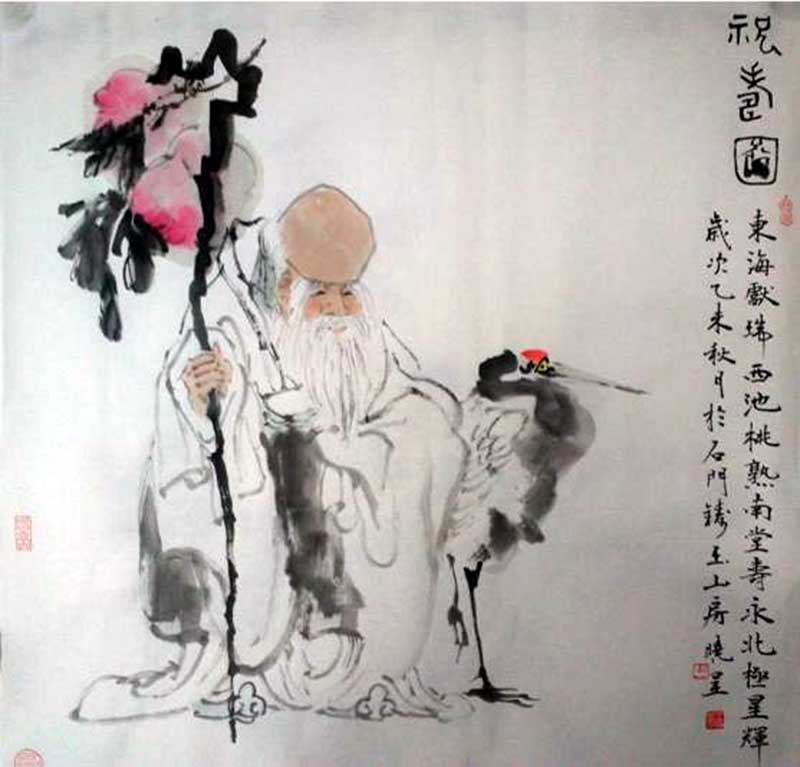 祝壽圖
東海獻瑞西池桃熟南堂壽永北極星輝
歲次乙未秋月於石門鑄玉山房曉